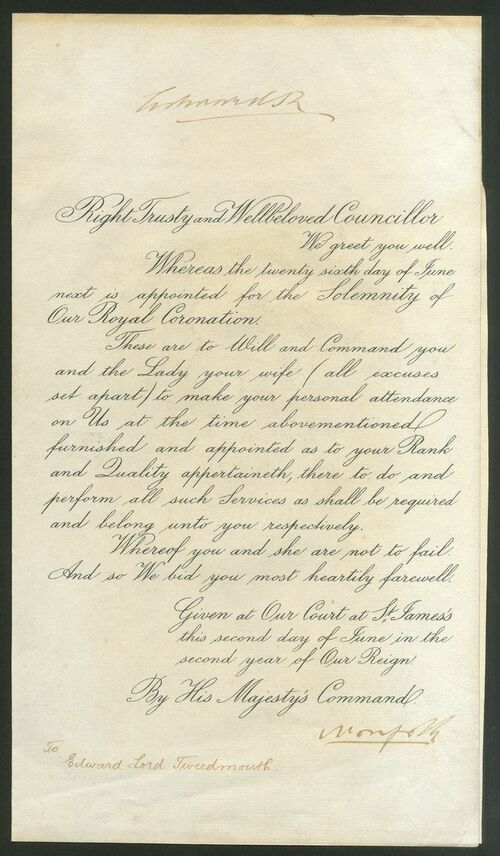 Edward R
Right Trusty and Wellbeloved Councillor
We greet you well.
Whereas the twenty sixth day of June
next is appointed for the Solemnity of
Our Royal Coronation.
These are to Will and Command you
and the Lady your wife (all excuses
set apart) to make your personal attendance
on Us at the time abovementioned
furnished and appointed as to your Rank
and Quality appertaineth, there to do and
perform all such Services as shall be required
and belong unto you respectively.
Whereof you and she are not to fail.
And so We bid you most heartily farewell.
Given at Our Court at St. James's
this second day of June in the
second year of Our Reign.
By His Majesty's Command.
Norfolk
To
Edward Lord Tweedmouth